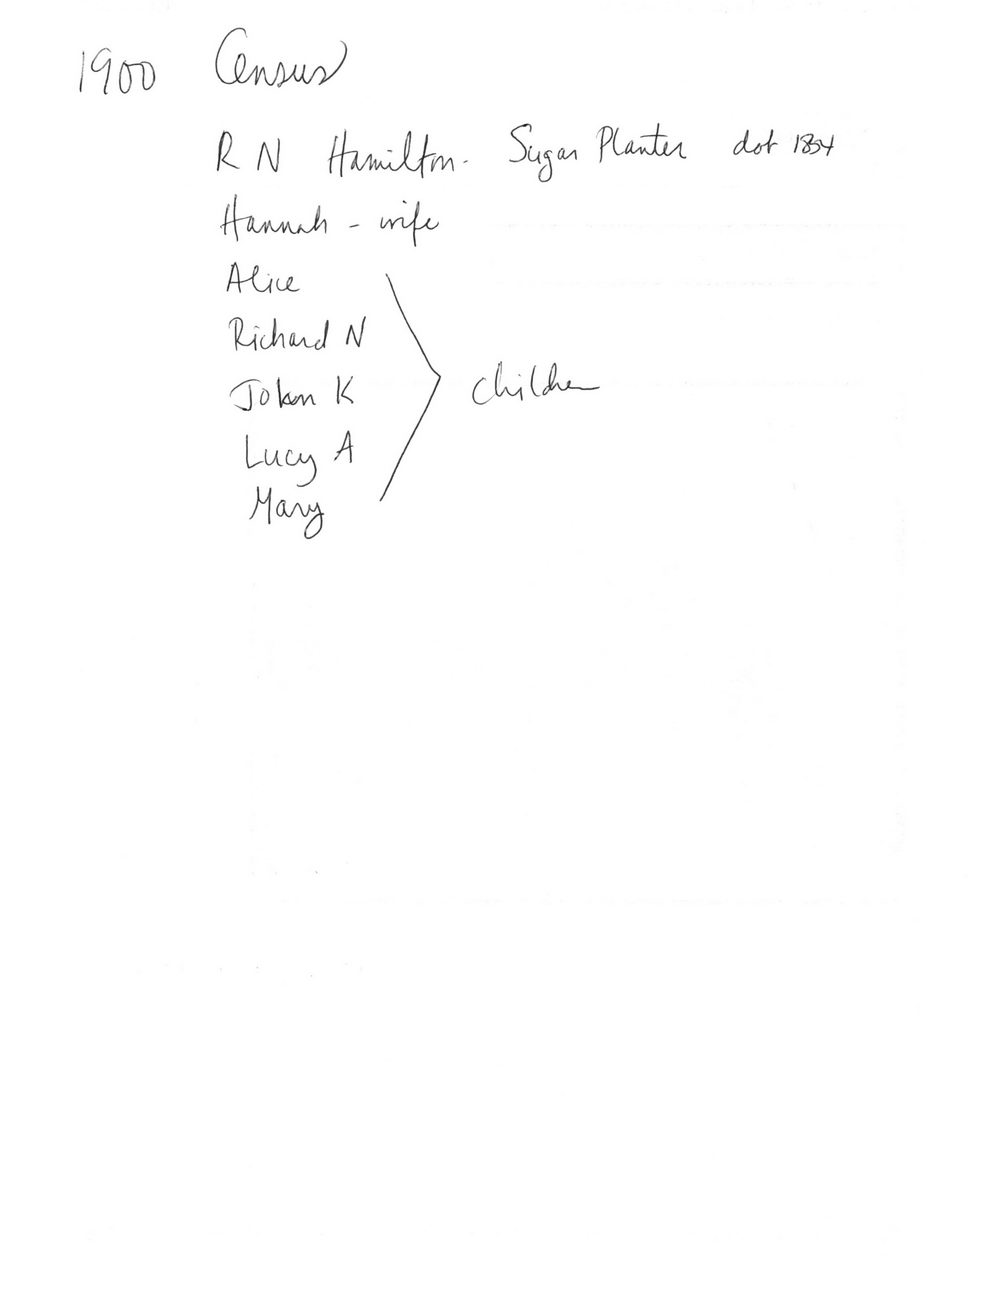 1900 Census
R N Hamilton - Sugar Planter dob 1854
Hannah - wife
Alice
Richard N
John K
children
Lucy A
Mary